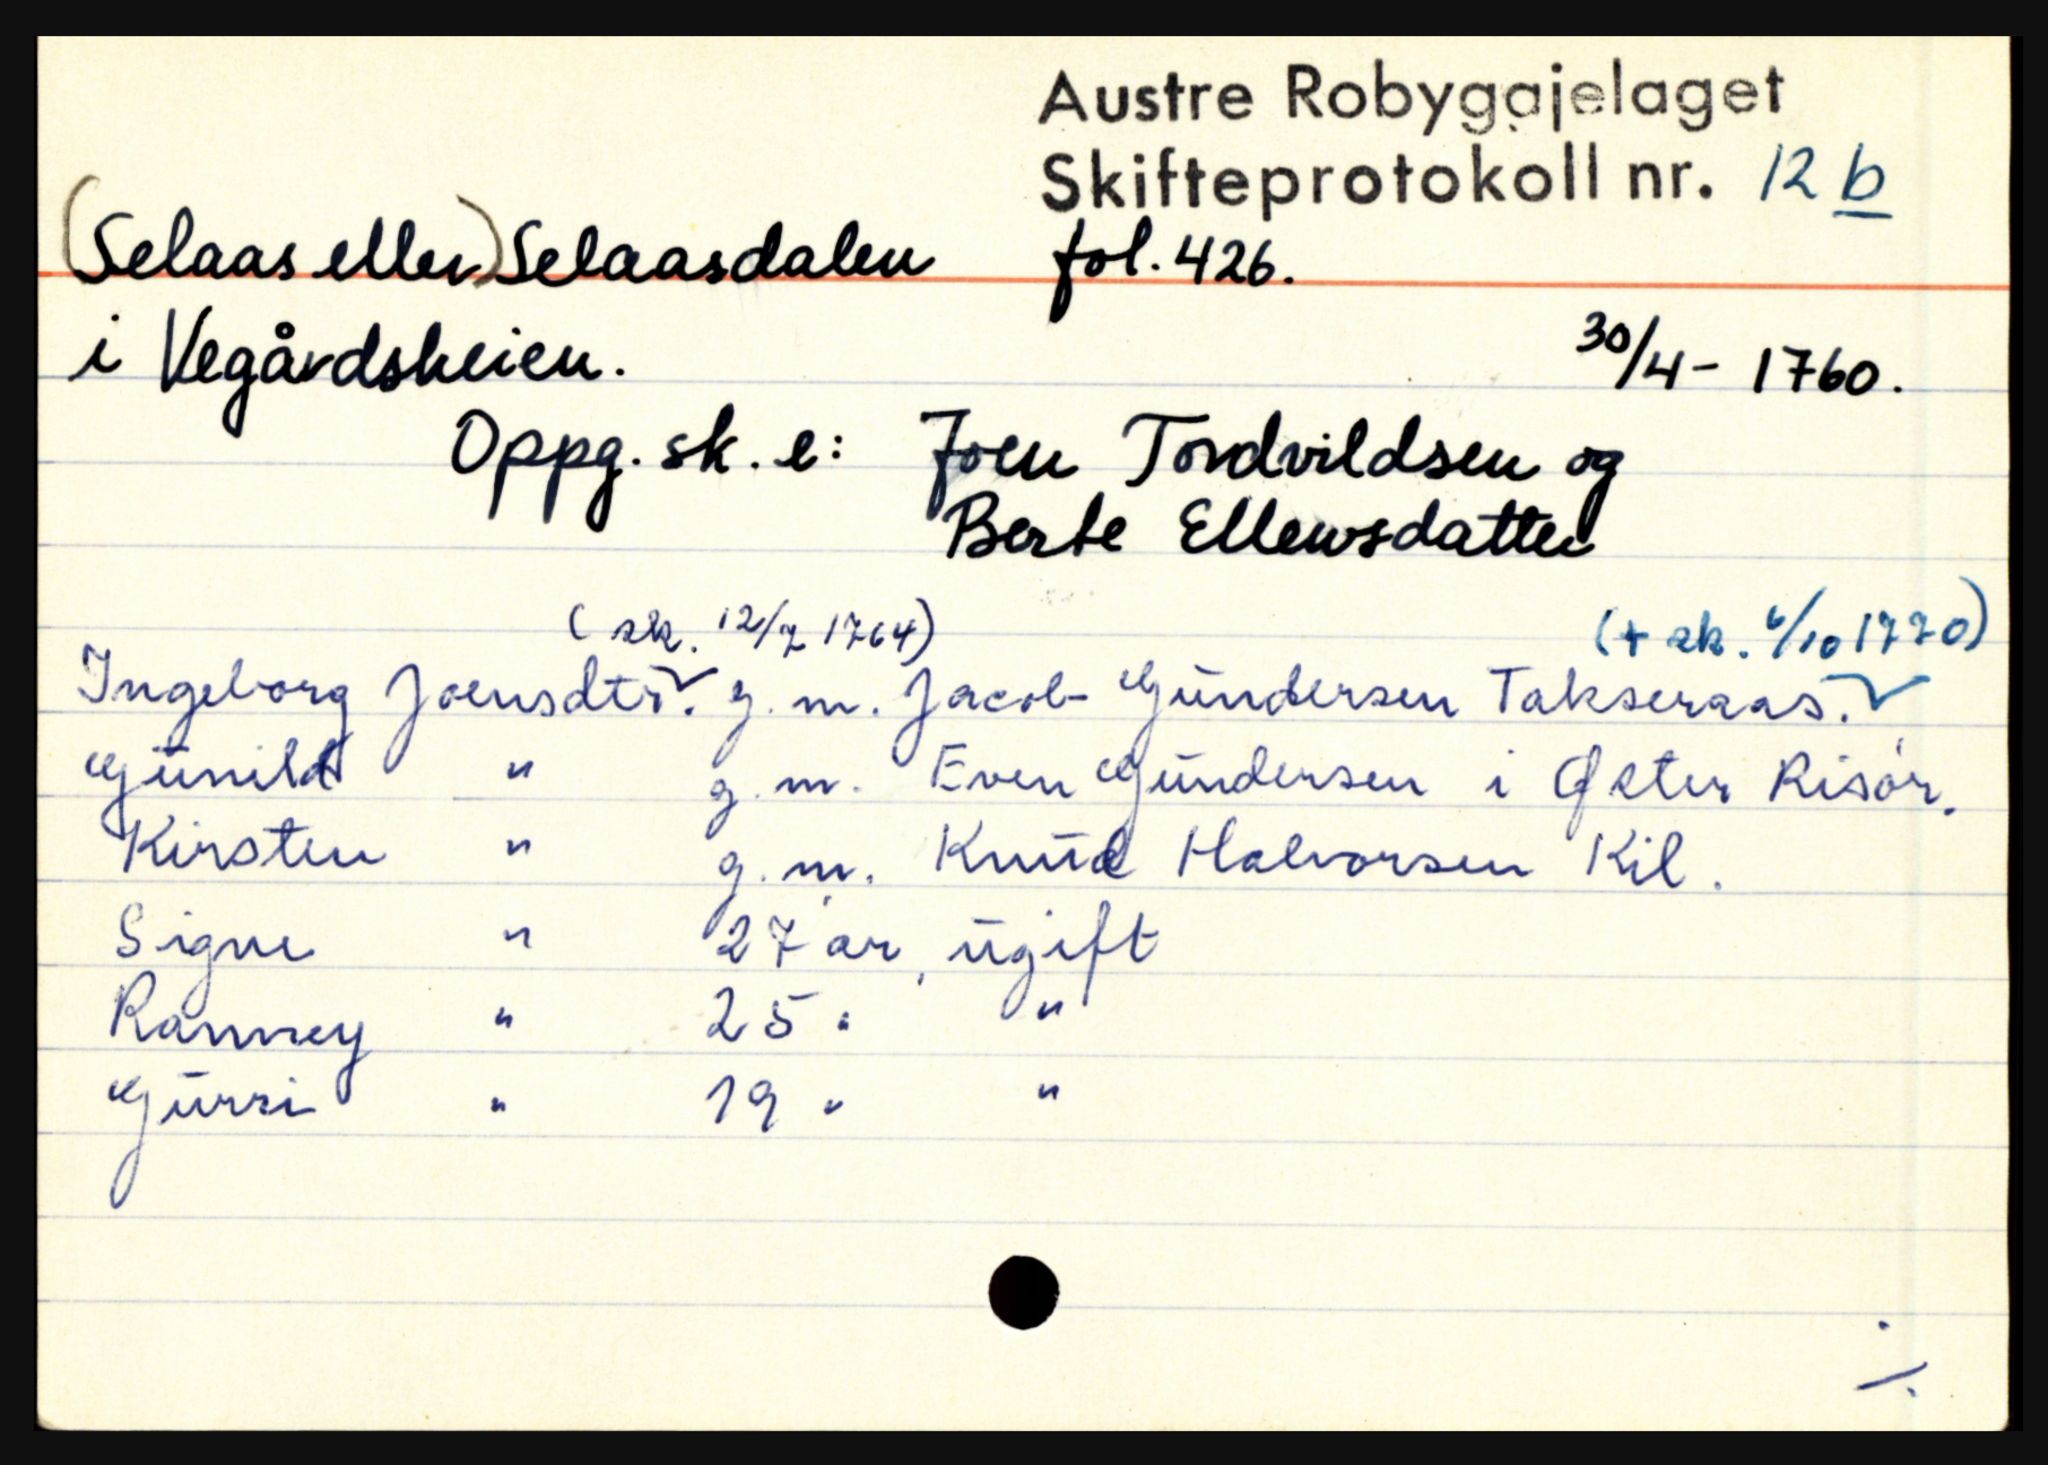 Austre Robygdjelaget
Skifteprotokoll nr. 12 b
(Selaas eller) Selaasdalen fol. 426.
i Vegårdsheien. 30/4 - 1760.
Oppg. sk. e: Joen Tordvildsen og
Berte Ellewsdatter
(sk. 12/7 1764) (+ sk. 6/10 1770)
Ingeborg Joensdtr. g. m. Jacob Gundersen Takseraas.
Gunild " g. m. Even Gundersen i Øster Risør.
Kirsten " g. m. Knud Halvorsen Kil.
Signe " 27 år, ugift
Ranney " 25 " "
Gurri " 19 " "
./.